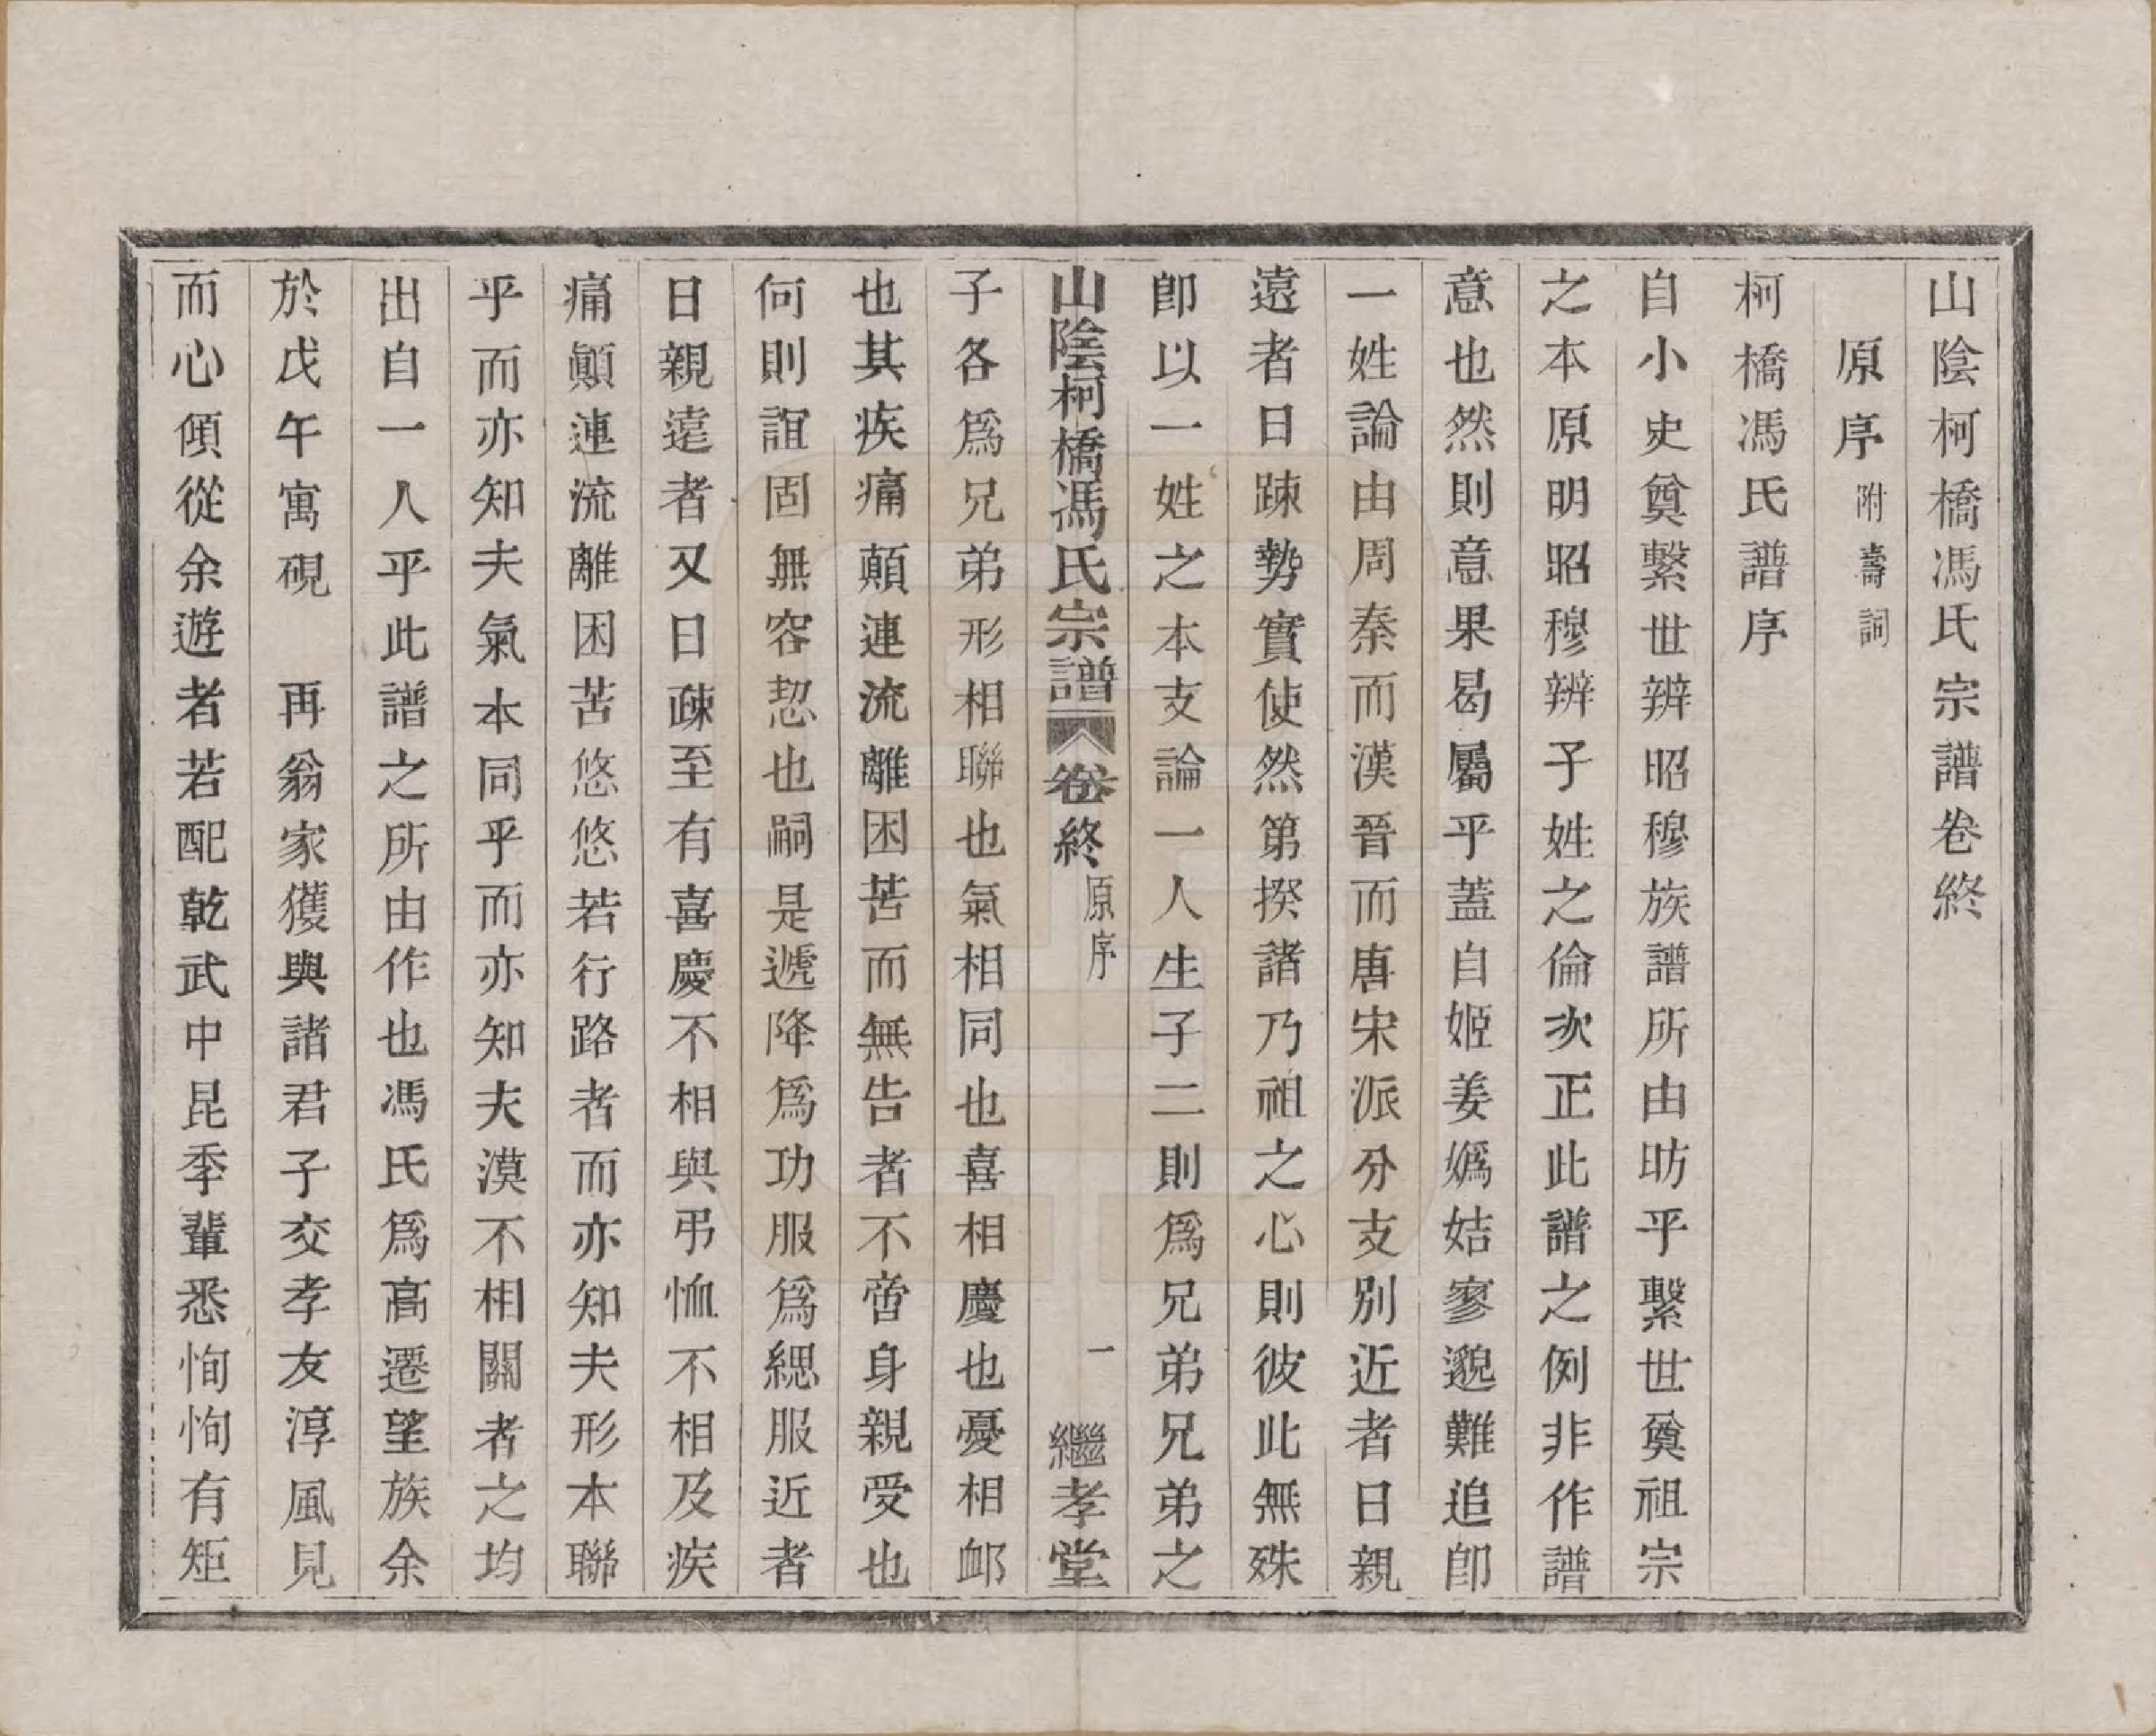 山陰柯橋馮氏宗譜卷終
原序附壽詞
柯橋馮氏譜序
自小史奠繫世辨昭穆族譜所由昉乎繫世奠祖宗
之本原明昭穆辨子姓之倫次正此譜之例非作譜
意也然則意果曷屬乎蓋自姬姜嬀姞寥邈難追卽
一姓論由周秦而漢晉而唐宋派分支別近者日親
遠者日踈勢實使然第揆諸乃祖之心則彼此無殊
卽以一姓之本支論一人生子二則爲兄弟兄弟之
山陰柯橋馮氏宗譜 卷終 原序 一 繼孝堂
子各爲兄弟形相聯也氣相同也喜相慶也憂相䘏
也其疾痛顛連流離困苦而無告者不啻身親受也
何則誼固無容恝也嗣是遞降爲功服爲緦服近者
日親遠者又日疎至有喜慶不相與弔恤不相及疾
痛顛連流離困苦悠悠若行路者而亦知夫形本聯
乎而亦知夫氣本同乎而亦知夫漠不相關者之均
出自一人乎此譜之所由作也馮氏爲高遷望族余
於戊午寓硯 再翁家獲與諸君子交孝友淳風見
而心傾從余遊者若配乾武中昆季輩悉恂恂有矩